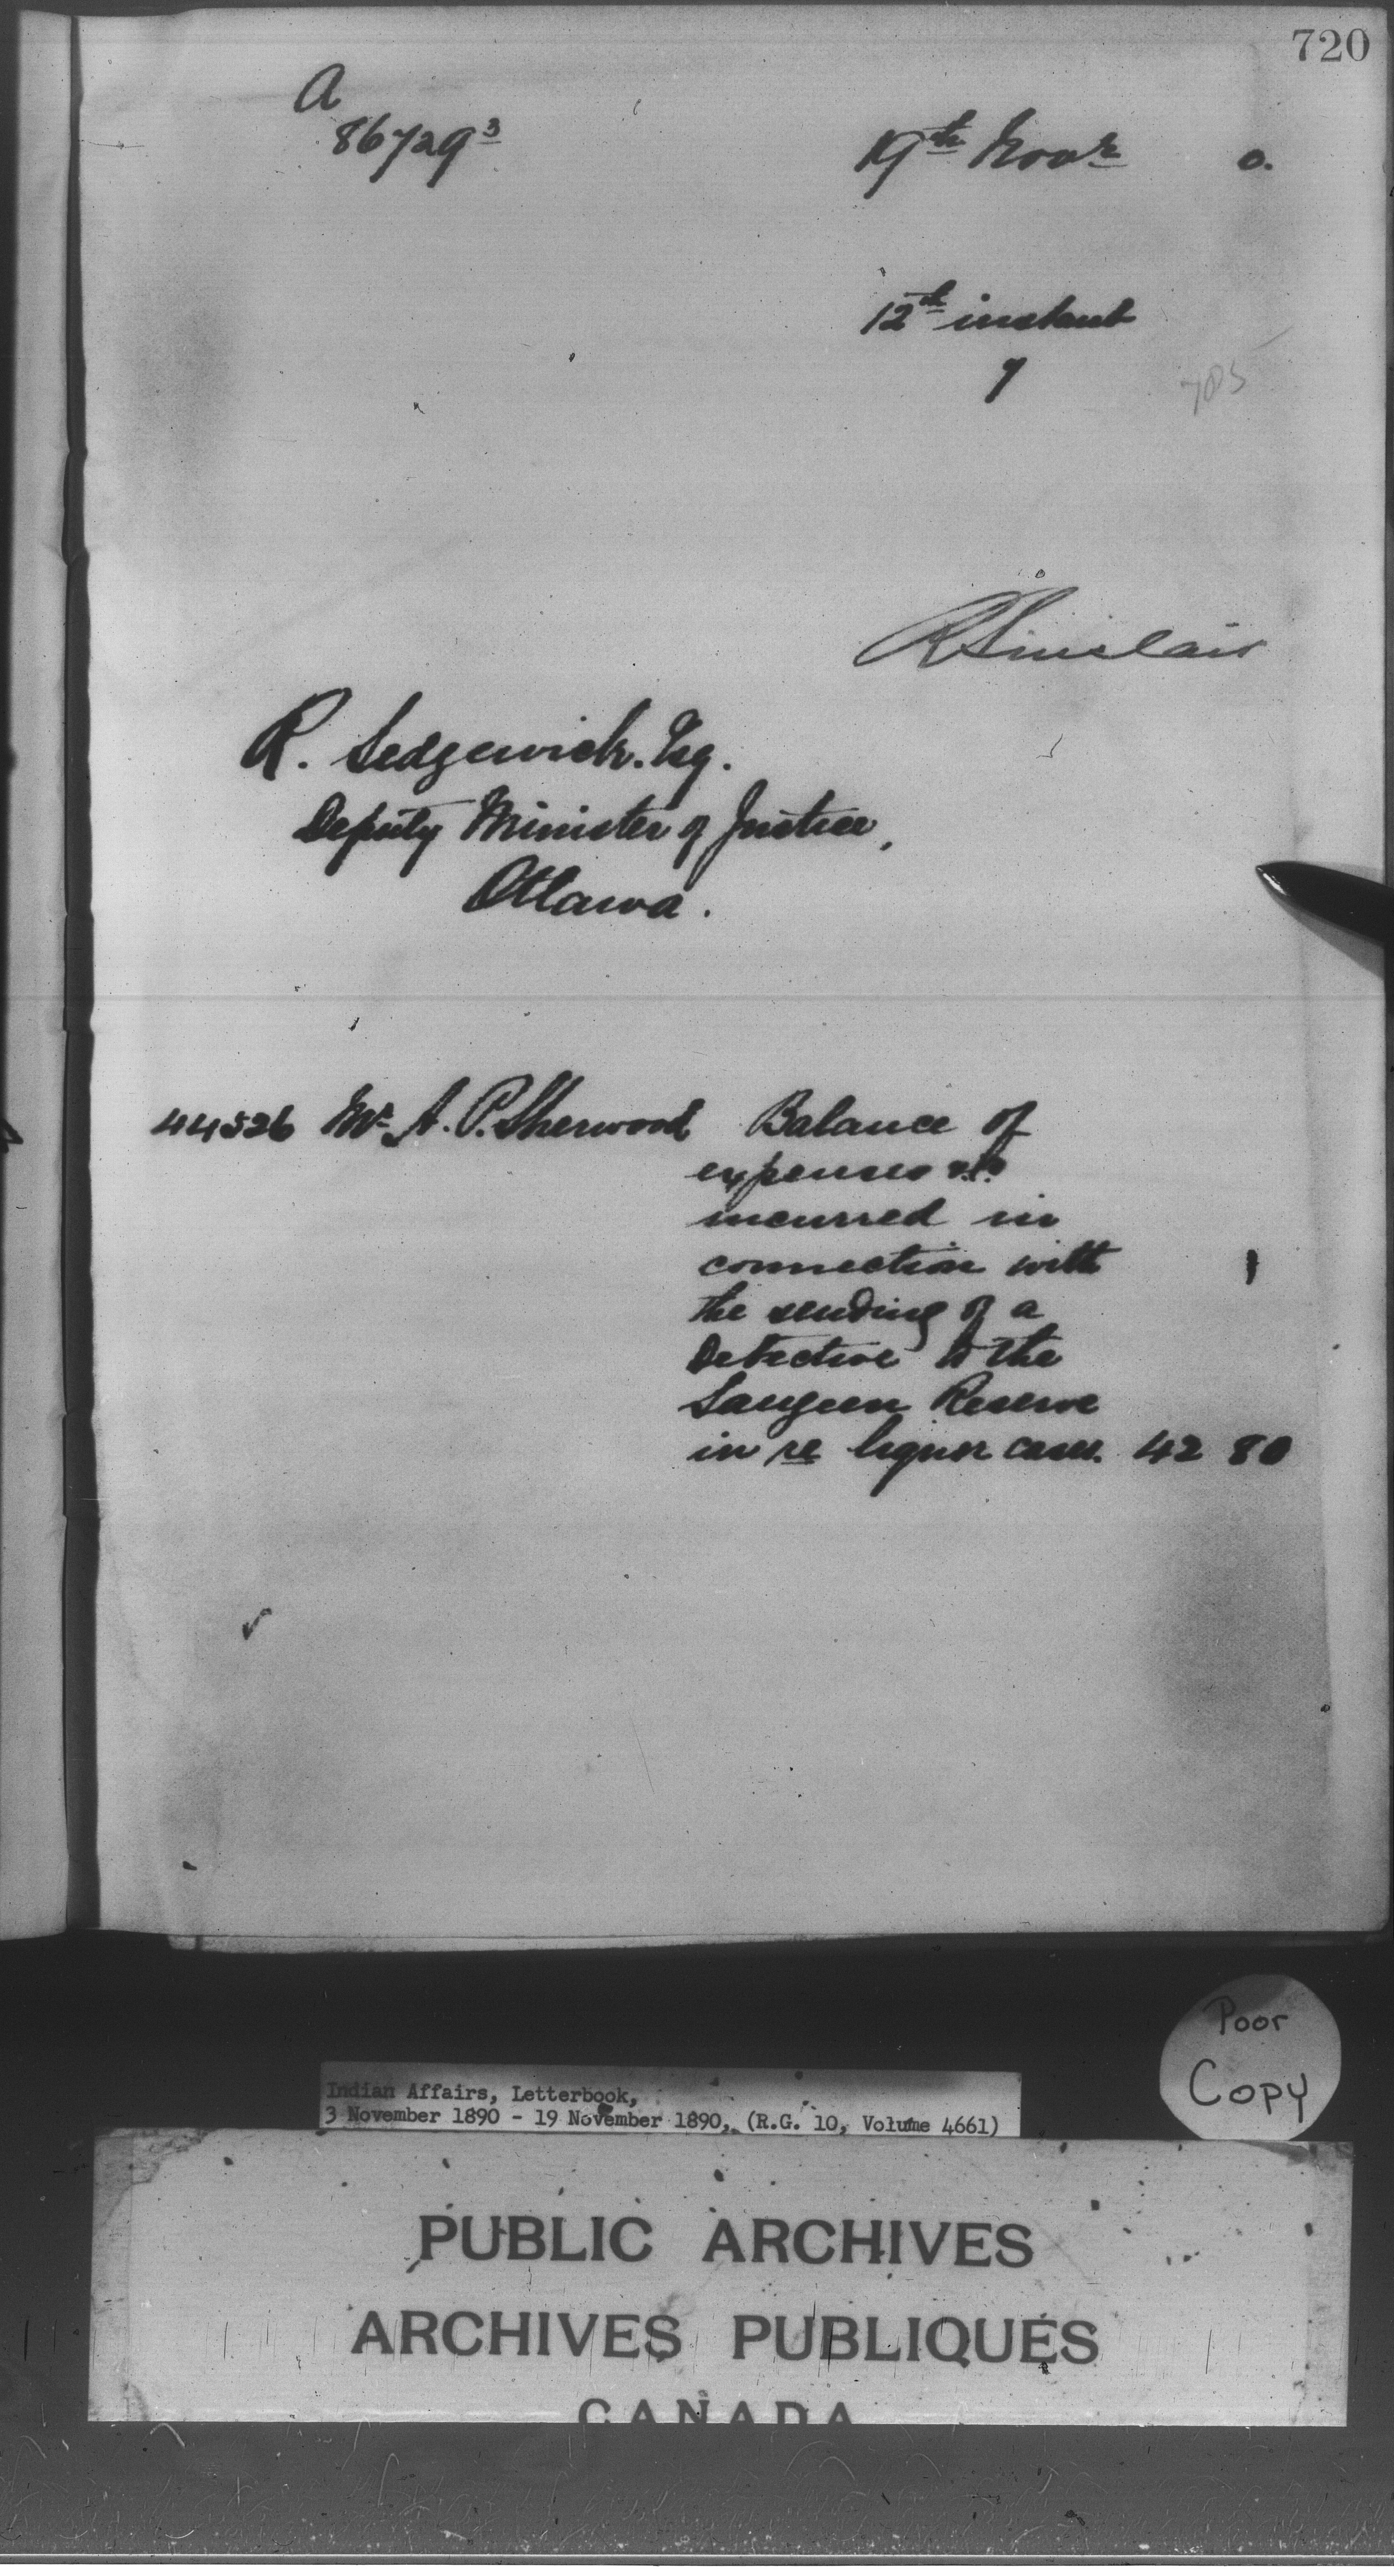 720
A
86729³
19th Novr 0.
12th instant
7
785
R Sinclair
R. Sedgewick. Esq.
Deputy Minister of Justice,
Ottawa.
44526 Mr A. P. Sherwood Balance of
expenses &c
incurred in
connection with
the sending of a
Detective to the
Saugeen Reserve
in re liquor cases. 42 80
Poor
Copy
Indian Affairs, Letterbook,
3 November 1890 - 19 November 1890, (R.G. 10, Volume 4661)
PUBLIC ARCHIVES
ARCHIVES PUBLIQUES
CANADA